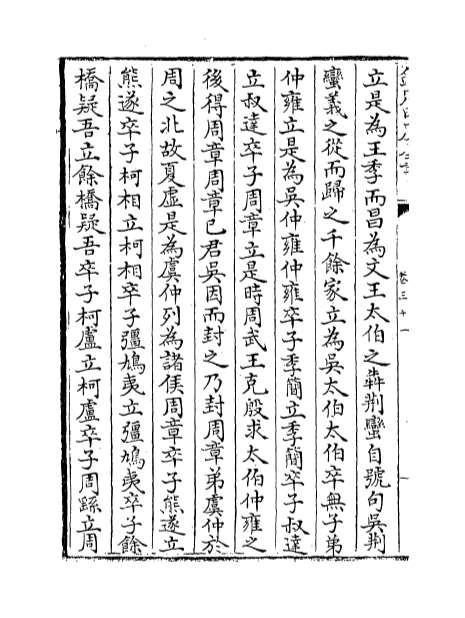 立是為王季而昌為文王太伯之犇荆蠻自號句吳荆
蠻義之從而歸之千餘家立為吳太伯太伯卒無子弟
仲雍立是為吳仲雍仲雍卒子季簡立季簡卒子叔達
立叔達卒子周章立是時周武王克殷求太伯仲雍之
後得周章周章已君吳因而封之乃封周章弟虞仲於
周之北故夏虛是為虞仲列為諸侯周章卒子熊遂立
熊遂卒子柯相立柯相卒子彊鳩夷立彊鳩夷卒子餘
橋疑吾立餘橋疑吾卒子柯盧立柯盧卒子周繇立周